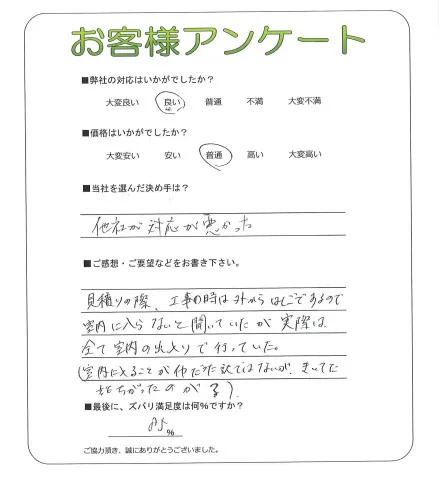 お客様アンケート
■弊社の対応はいかがでしたか?
大変良い 良い 普通 不満 大変不満
■価格はいかがでしたか?
大変安い 安い 普通 高い 大変高い
■当社を選んだ決め手は?
他社が対応が悪かった
■ご感想・ご要望などをお書き下さい。
見積りの際、工事の時は外からはしごであるので
室内に入らないと聞いていたが実際は
全て室内の出入りで行っていた。
(室内に入ることが
■最後に、ズバリ満足度は何%ですか?
%
ご協力頂き、誠にありがとうございました。